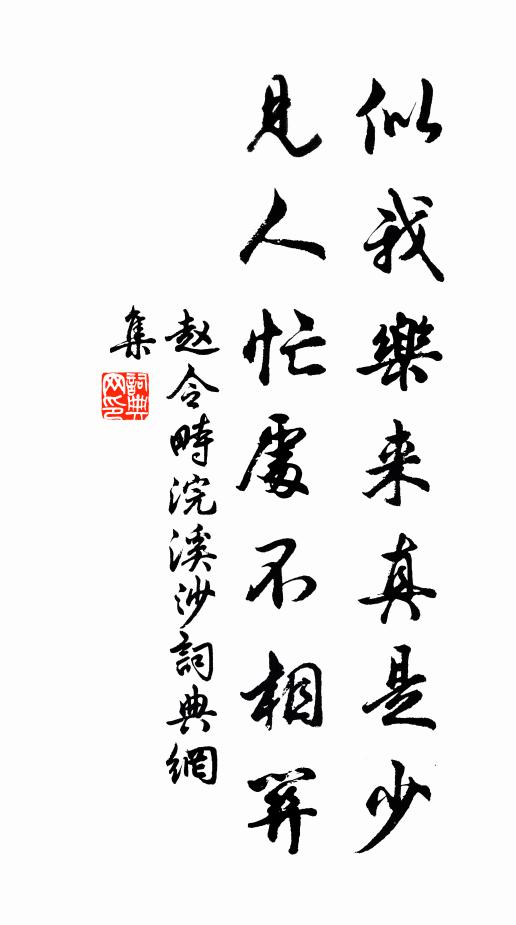 似我樂来真是少
見人忙處不相關
赵令畤浣溪沙詞典網
集
詞典网印